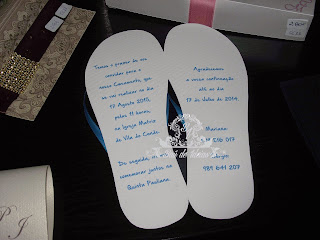 Temos o prazer de vos
convidar para o
nosso Casamento, que
se vai realizar no dia
17 Agosto 2013,
pelas 11 horas,
na Igreja Matriz
de Vila do Conde.
De seguida, os
comemorar juntos na
Quinta Pauliana.
Agradecemos
a vossa confirmação
até ao dia
17 de Julho de 2013.
Mariana
016 017
Sérgio
989 641 207
P J